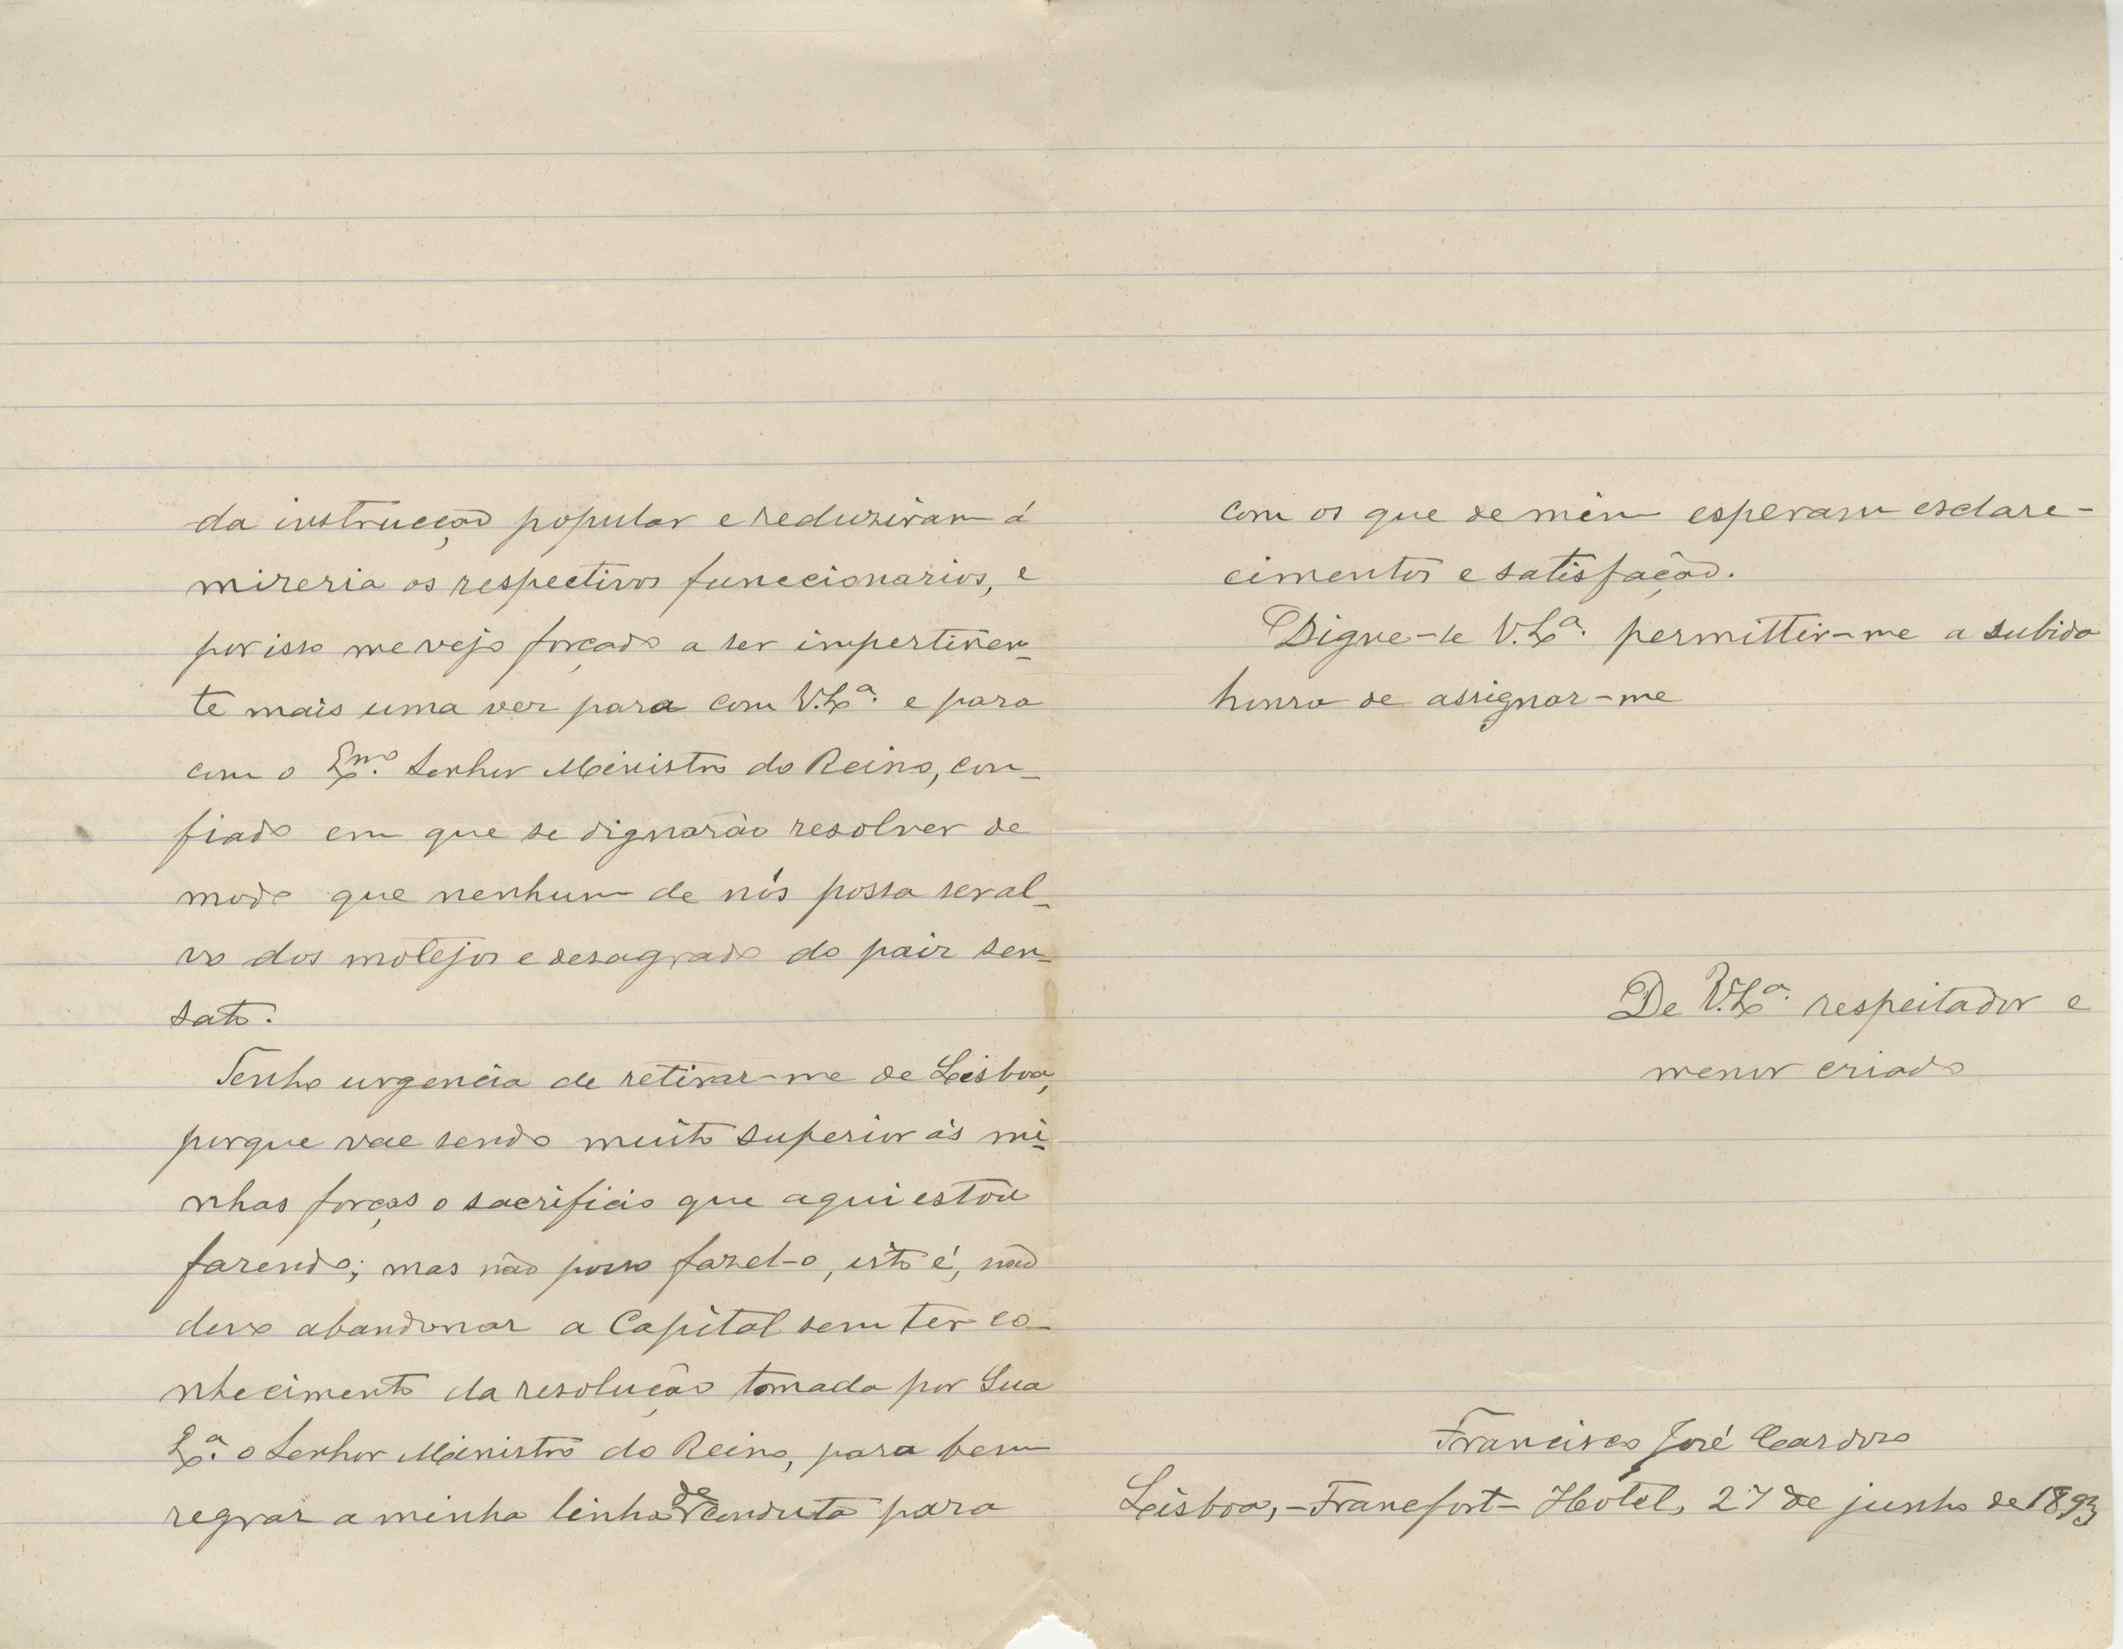 da instrucção popular e reduziram á
mizeria os respectivos funccionarios, e
por isso me vejo forçado a ser impertinen-
te mais uma vez para com V. Ex.ª e para
com o Ex.mo Senhor Ministro do Reino, con-
fiado em que se dignarão resolver de
modo que nenhum de nós possa ser al-
vo dos motejos e desagrado do paiz sen-
sato.
Tenho urgencia de retirar-me de Lisboa,
porque vae sendo muito superior ás mi-
nhas forças o sacrificio que aqui estou
fazendo; mas não posso fazel-o, isto é, não
devo abandonar a Capital sem ter co-
nhecimento da resolução tomada por Sua
Ex.ª o Senhor Ministro do Reino, para bem
regrar a minha linha de conducta para
com os que de mim esperam esclare-
cimentos e satisfação.
Digne-se V. Ex.ª permittir-me a subida
honra de assignar-me
De V. Ex.ª respeitador e
menor criado
Francisco José Cardozo
Lisboa, - Francfort - Hotel, 27 de junho de 1893